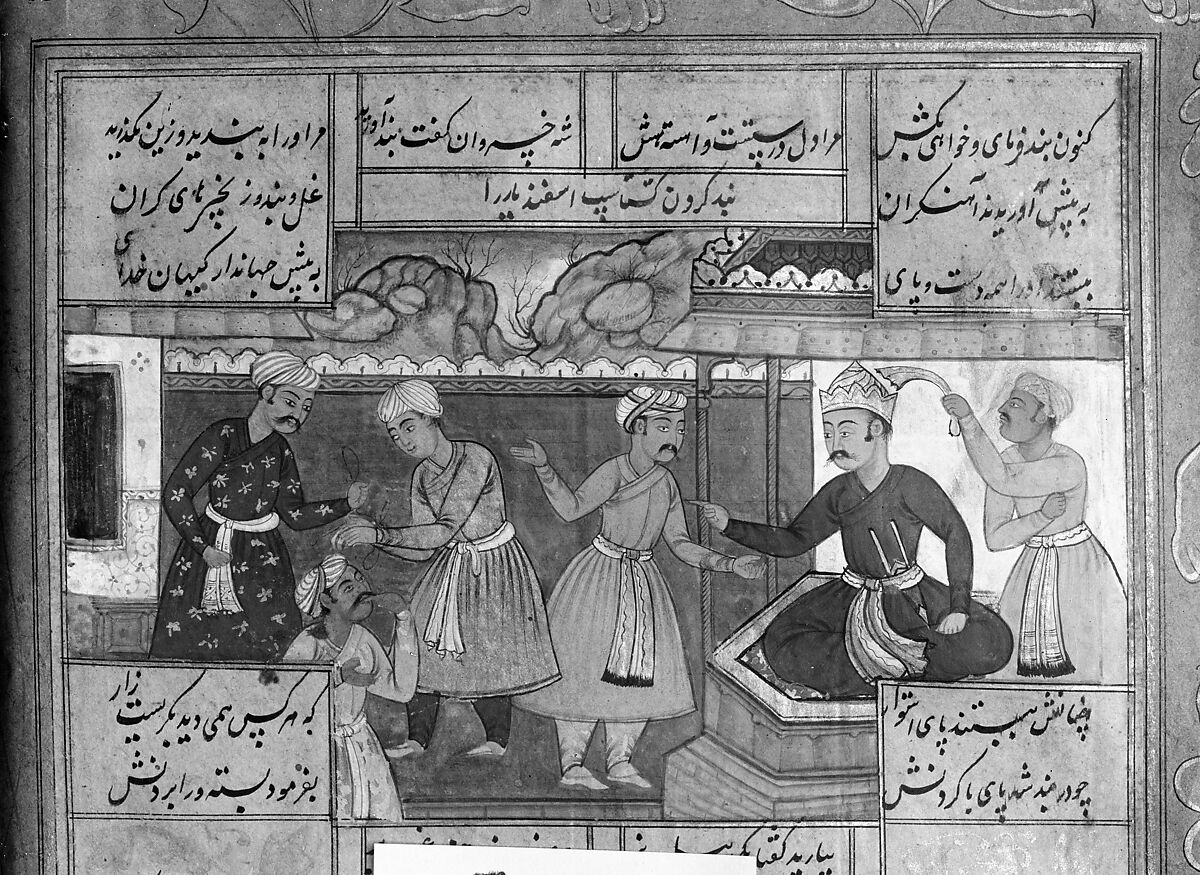 کنون بند فرمای و خواهی بکش
مرا دل درستست و آهسته هش
شه خسروان گفت بند آورید
مر او را ببندید و زین مگذرید
بند کردن گشتاسپ اسفندیار را
به پیش آوریدند آهنگران
غل و بند و زنجیرهای گران
ببستند او را همه دست و پای
به پیش جهاندار گیهان خدای
چنانش ببستند پای استوار
که هر کس همی دید بگریست زار
چو در بند شد پای با گردنش
بفرمود بسته ورا بردنش
بیارید گفتا یکی